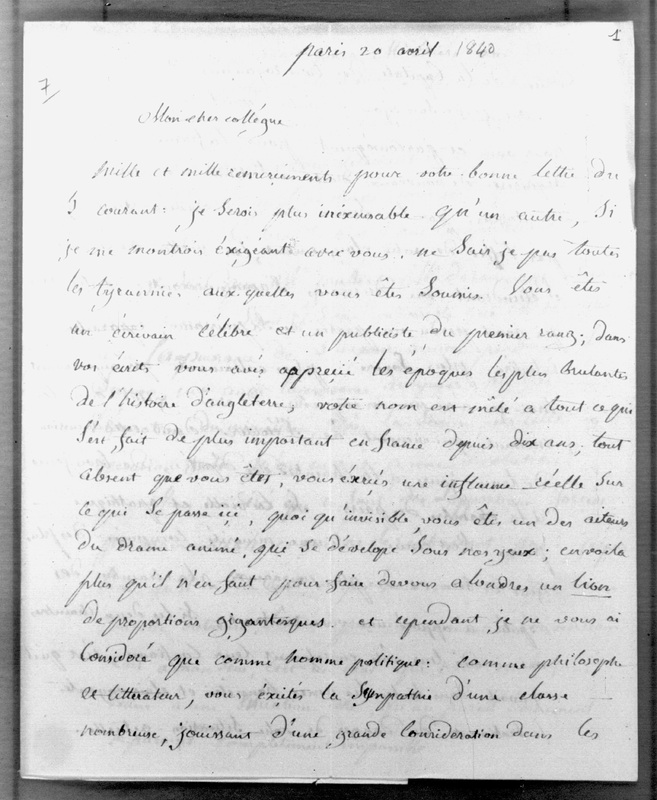 1
7
paris 20 avril 1840
Mon cher collégue
Mille et mille remerciements pour votre bonne lettre du
5 courant: je serois plus inéxcusable qu'un autre, si
je me montrois éxigeant avec vous. ne sais je pas toutes
les tyrannies auxquelles vous êtes soumis. Vous êtes
un écrivain célèbre et un publiciste du premier rang; dans
vos écrits vous avés apprecié les époques les plus brulantes
de l'histoire d'angleterre; votre nom est mêlé a tout ce qui
s'est fait de plus important en france depuis dix ans; tout
absent que vous êtes, vous éxercés une influence réelle sur
ce qui se passe ici, quoi qu'invisible, vous êtes un des acteurs
du drame animé, qui se dévelope sous nos yeux; en voila
plus qu'il n'en faut pour faire de vous a londres un lion
de proportions gigantesques. et cependant je ne vous ai
considéré que comme homme politique: comme philosophe
et littérateur, vous éxcités la sympathie d'une classe
nombreuse, jouissant d'une grande consideration dans les